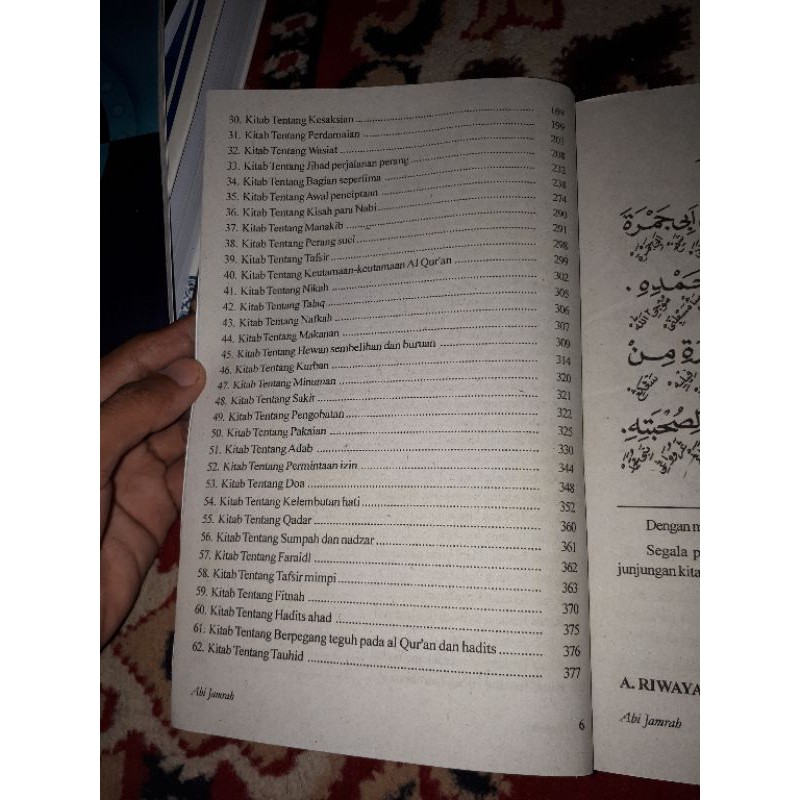 30. Kitab Tentang Kesaksian ........ 189
31. Kitab Tentang Perdamaian ........ 199
32. Kitab Tentang Wasiat ........ 201
33. Kitab Tentang Jihad perjalanan perang ........ 208
34. Kitab Tentang Bagian seperlima ........ 232
35. Kitab Tentang Awal penciptaan ........ 238
36. Kitab Tentang Kisah para Nabi ........ 274
37. Kitab Tentang Manakib ........ 290
38. Kitab Tentang Perang suci ........ 291
39. Kitab Tentang Tafsir ........ 298
40. Kitab Tentang Keutamaan-keutamaan Al Qur'an ........ 299
41. Kitab Tentang Nikah ........ 302
42. Kitab Tentang Talaq ........ 305
43. Kitab Tentang Nafkah ........ 306
44. Kitab Tentang Makanan ........ 307
45. Kitab Tentang Hewan sembelihan dan buruan ........ 309
46. Kitab Tentang Kurban ........ 314
47. Kitab Tentang Minuman ........ 320
48. Kitab Tentang Sakit ........ 321
49. Kitab Tentang Pengobatan ........ 322
50. Kitab Tentang Pakaian ........ 325
51. Kitab Tentang Adab ........ 330
52. Kitab Tentang Permintaan izin ........ 344
53. Kitab Tentang Doa ........ 348
54. Kitab Tentang Kelembutan hati ........ 352
55. Kitab Tentang Qadar ........ 360
56. Kitab Tentang Sumpah dan nadzar ........ 361
57. Kitab Tentang Faraidl ........ 362
58. Kitab Tentang Tafsir mimpi ........ 363
59. Kitab Tentang Fitnah ........ 370
60. Kitab Tentang Hadits ahad ........ 375
61. Kitab Tentang Berpegang teguh pada al Qur'an dan hadits ........ 376
62. Kitab Tentang Tauhid ........ 377
Abi Jamrah
6
أَبِي جَمْرَةَ
حَمْدِهِ.
ةِ مِنْ
لِصُحْبَتِهِ.
Dengan m
Segala p
junjungan kita
A. RIWAYA
Abi Jamrah